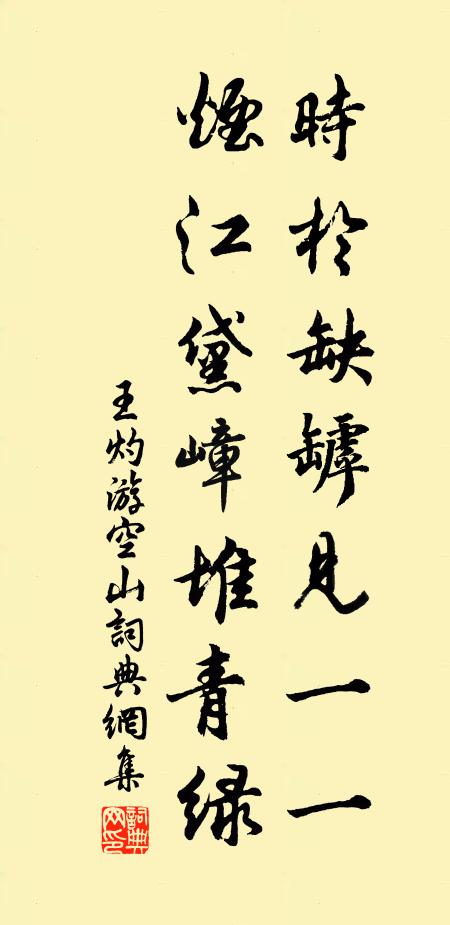 時於缺罅見一一
煙江黛嶂堆青緑
王灼游空山詞典網集
詞典网印